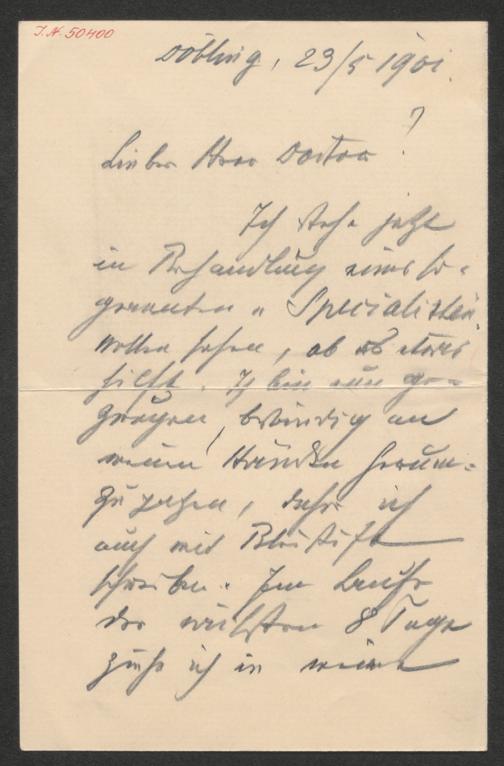 I. N. 50400
Döbling, 23/5 1901.
Lieber Herr Doctor!
Ich stehe jetzt
in Behandlung eines so-
genannten „Specialisten.
wollen sehen, ob es etwas
hilft. Ich bin nun ge-
zwungen, beständig an
meinen Händen herum-
zu, daher ich
auch mit Bleistift
schreibe. Im Laufe
der nächsten 8 Tage
ziehe ich in meine